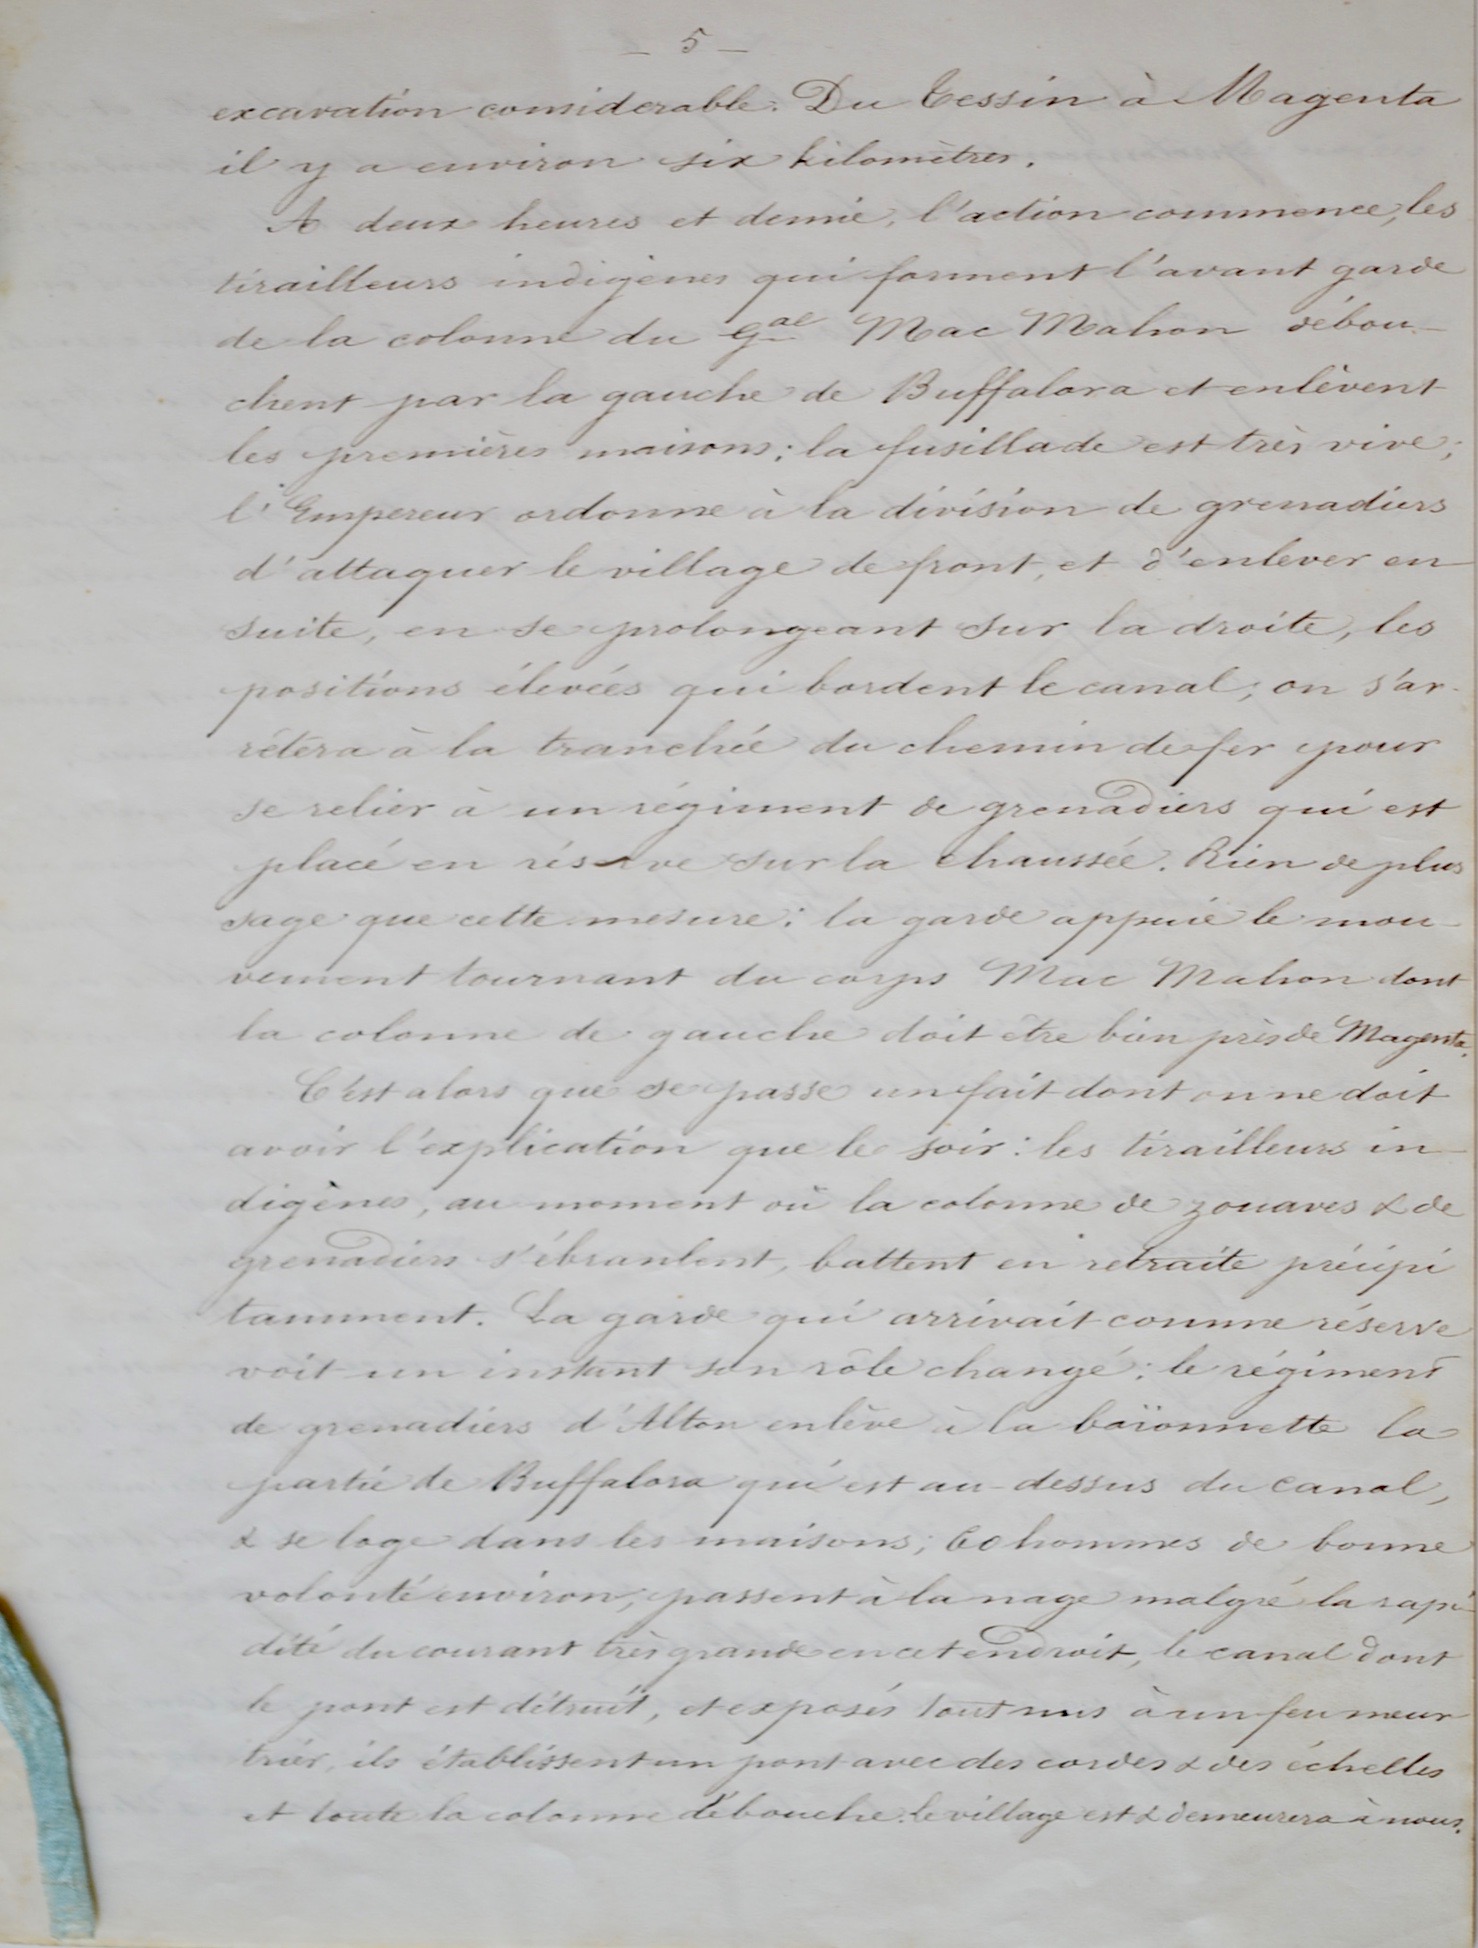 — 5 —
excavation considerable. Du Tessin à Magenta
il y a environ six kilomètres.
A deux heures et demie, l'action commence, les
tirailleurs indigènes qui forment l'avant garde
de la colonne du Gal Mac Mahon débou-
chent par la gauche de Buffalora et enlèvent
les premières maisons; la fusillade est très vive;
l'Empereur ordonne à la division de grenadiers
d'attaquer le village de front, et d'enlever en
suite, en se prolongeant sur la droite, les
positions élevées qui bordent le canal; on s'ar-
rêtera à la tranchée du chemin de fer pour
se relier à un régiment de grenadiers qui est
placé en réserve sur la chaussée. Rien de plus
sage que cette mesure: la garde appuie le mou-
vement tournant du corps Mac Mahon dont
la colonne de gauche doit être bien près de Magenta.
C'est alors que se passe un fait dont on ne doit
avoir l'explication que le soir: les tirailleurs in-
digènes, au moment où la colonne de zouaves & de
grenadiers s'ébranlent, battent en retraite précipi
tamment. La garde qui arrivait comme réserve
voit un instant son rôle changé: le régiment
de grenadiers d'Alton enlève à la baïonnette la
partie de Buffalora qui est au-dessus du canal,
& se loge dans les maisons; 60 hommes de bonne
volonté environ, passent à la nage malgré la rapi-
dité du courant très grande en cet endroit, le canal dont
le pont est détruit, et exposés tout nus à un feu meur
trier, ils établissent un pont avec des cordes & des échelles
et toute la colonne débouche. le village est & demeurera à nous.